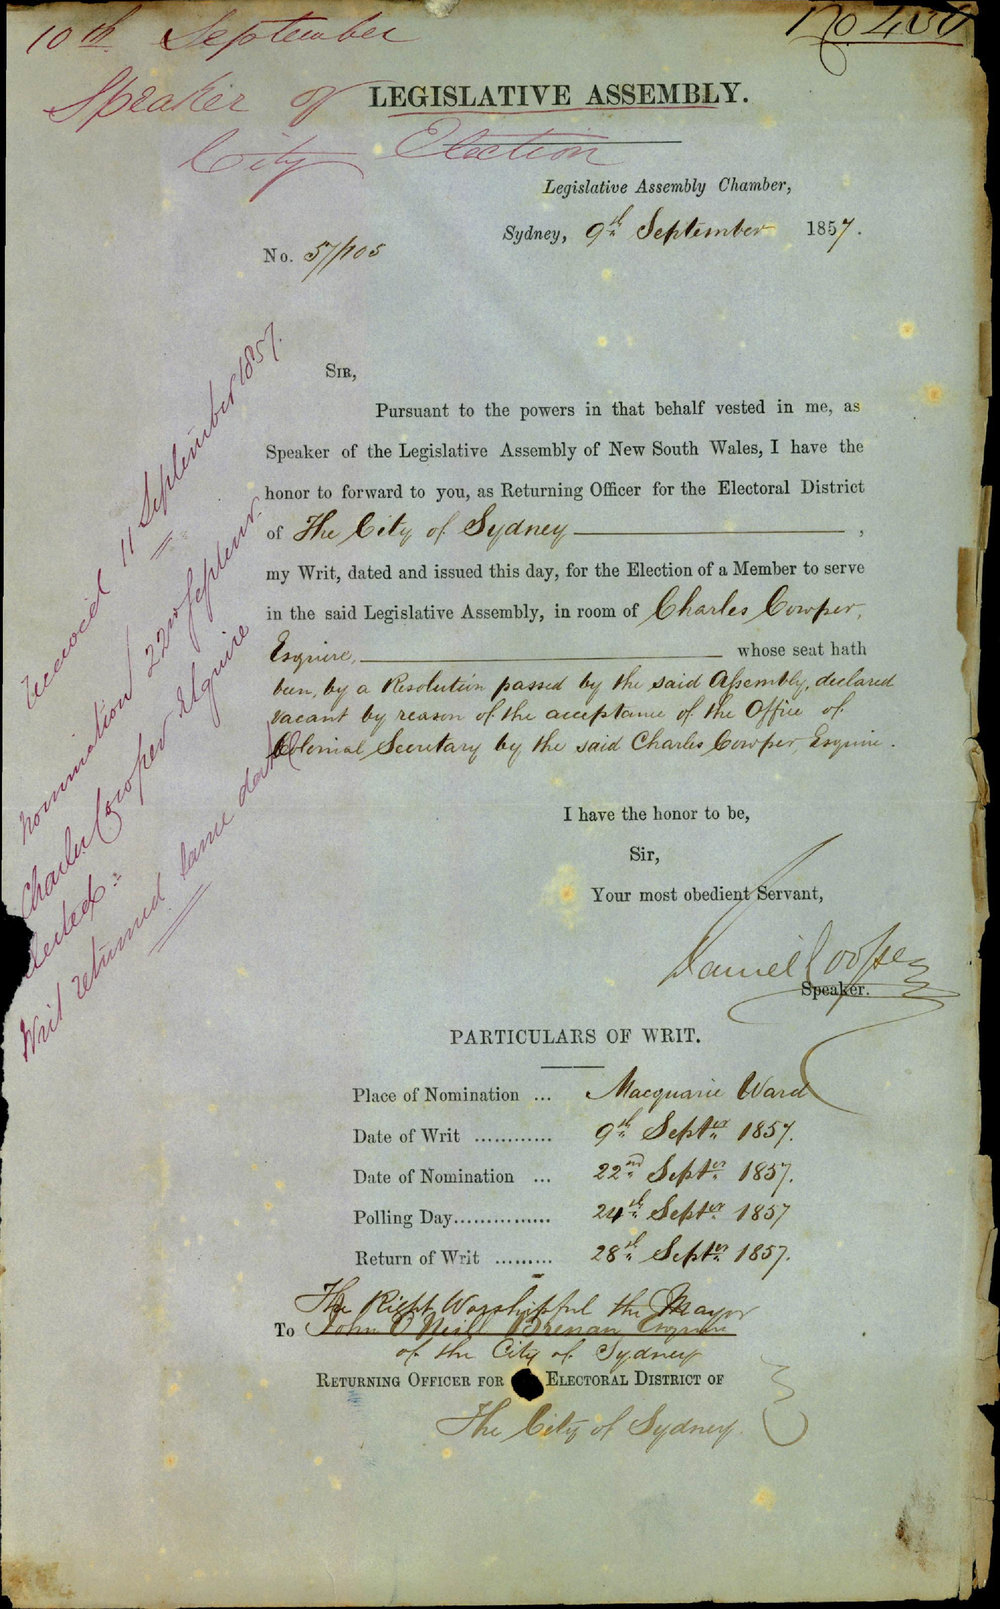 10th September
No. 430
Speaker of LEGISLATIVE ASSEMBLY.
City Election
Legislative Assembly Chamber,
Sydney, 9th September 1857.
No. 57/105
SIR,
Pursuant to the powers in that behalf vested in me, as
Speaker of the Legislative Assembly of New South Wales, I have the
honor to forward to you, as Returning Officer for the Electoral District
of The City of Sydney ,
my Writ, dated and issued this day, for the Election of a Member to serve
in the said Legislative Assembly, in room of Charles Cowper,
Esquire, whose seat hath
been, by a Resolution passed by the said Assembly, declared
vacant by reason of the acceptance of the Office of
Colonial Secretary by the said Charles Cowper, Esquire.
Received 11 September 1857.
Nomination 22nd Septemr.
Charles Cowper Esquire
elected
Writ returned same date
I have the honor to be,
Sir,
Your most obedient Servant,
Daniel Cooper
Speaker.
PARTICULARS OF WRIT.
Place of Nomination ... Macquarie Ward
Date of Writ ............ 9th Septer 1857.
Date of Nomination ... 22nd Septer 1857.
Polling Day............... 24th Septer 1857
Return of Writ ......... 28th Septer 1857.
The Right Worshipful the Mayor
To John O'Neill Brenan Esquire
of the City of Sydney
RETURNING OFFICER FOR ELECTORAL DISTRICT OF
The City of Sydney